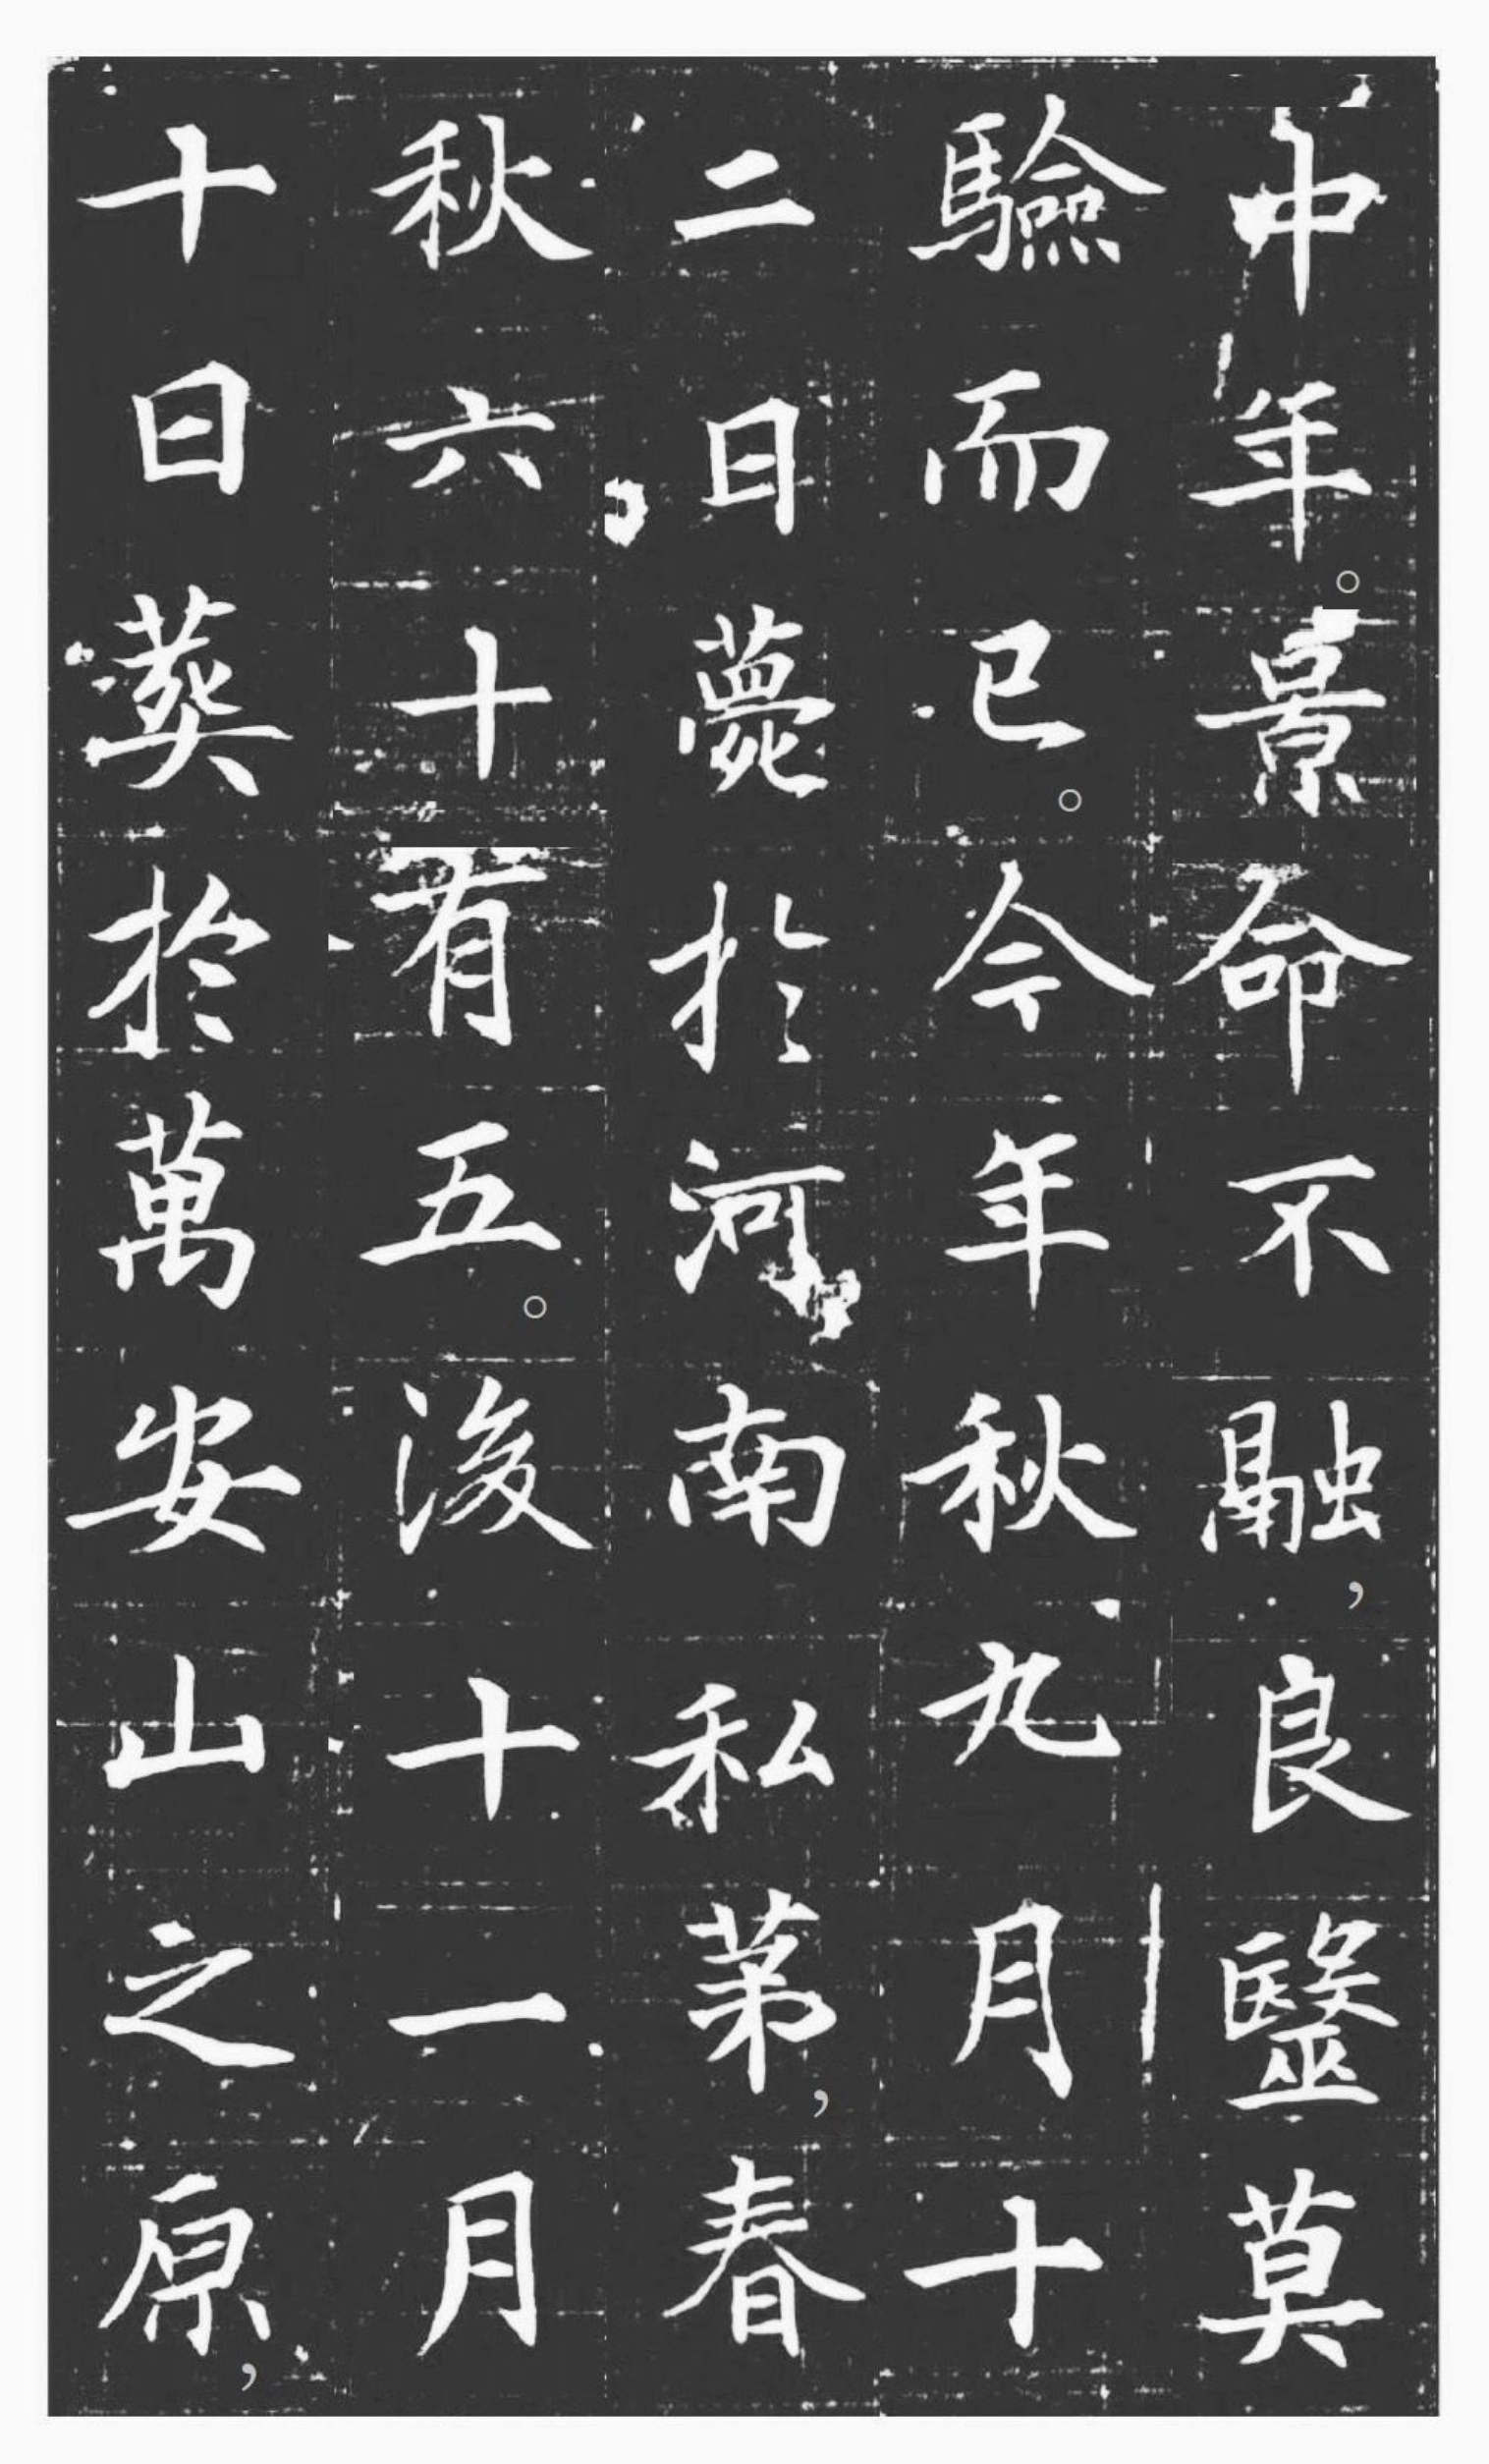 中年。景命不融，良毉莫
驗而已。今年秋九月十
二日薨於河南私苐，春
秋六十有五。後十一月
十日葬於萬安山之原，